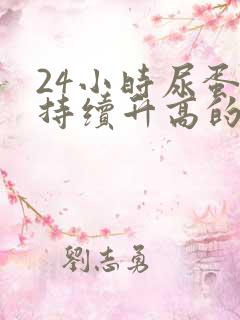 24小時尿蛋
持續升高的
劉志勇